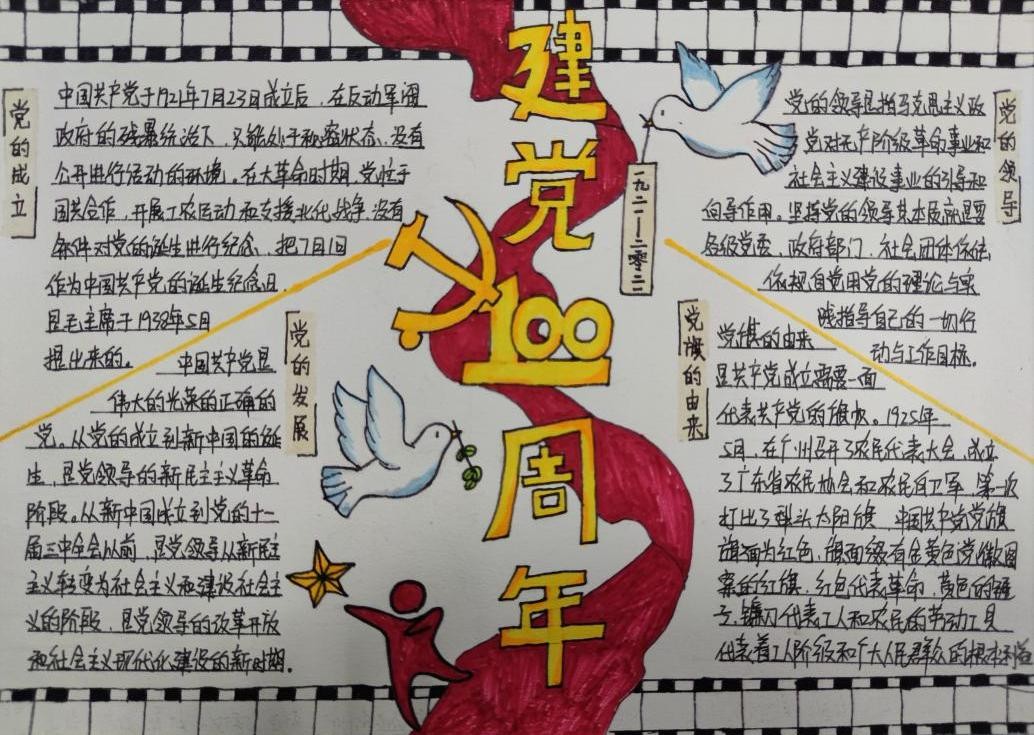 建党100周年
一九二一—二零二一
党的成立
中国共产党于1921年7月23日成立后，在反动军阀
政府的残暴统治下，只能处于秘密状态，没有
公开进行活动的环境。在大革命时期，党忙于
国共合作，开展工农运动和支援北伐战争，没有
条件对党的诞生进行纪念，把7月1日
作为中国共产党的诞生纪念日，
是毛主席于1938年5月
提出来的。
党的发展
中国共产党是
伟大的光荣的正确的
党。从党的成立到新中国的诞
生，是党领导的新民主主义革命
阶段。从新中国成立到党的十一
届三中全会以前，是党领导从新民主
主义转变为社会主义和建设社会主
义的阶段，是党领导的改革开放
和社会主义现代化建设的新时期。
党的领导
党的领导是指马克思主义政
党对无产阶级革命事业和
社会主义建设事业的引导和
向导作用。坚持党的领导其本质就是要
各级党委、政府部门、社会团体
依规自觉用党的理论与实
践指导自己的一切行
动与工作目标。
党旗的由来
党旗的由来
是共产党成立需要一面
代表共产党的旗帜。1925年
5月，在广州召开了农民代表大会，成立
了广东省农民协会和农民自卫军，第一次
打出了犁头为阳旗，中国共产党党旗
旗面为红色，旗面缀有金黄色党徽图
案的红旗，红色代表革命，黄色的锤
子、镰刀代表工人和农民的劳动工具
代表着工人阶级和广大人民群众的根本利益